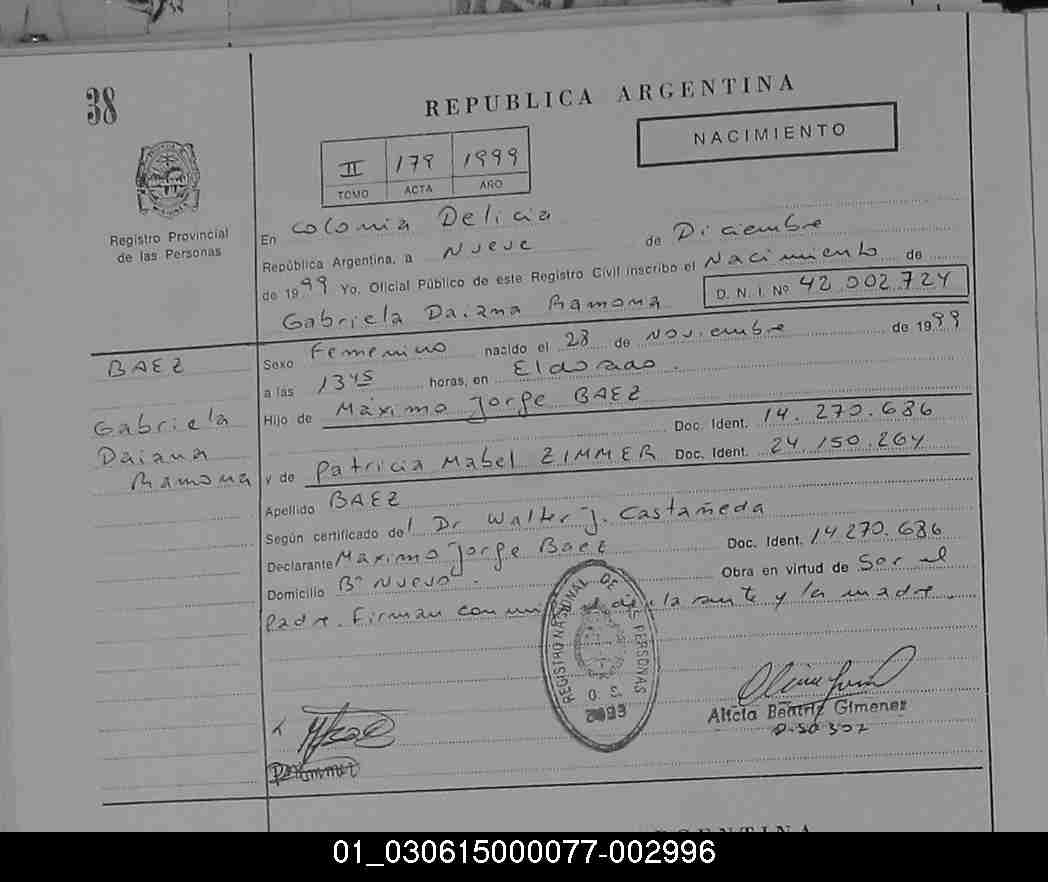 38
REPUBLICA ARGENTINA
NACIMIENTO
II 179 1999
TOMO ACTA AÑO
Registro Provincial
de las Personas
En Colonia Delicia
República Argentina, a Nueve de Diciembre
de 1999 Yo, Oficial Público de este Registro Civil inscribo el Nacimiento de
Gabriela Daiana Ramona D. N. I. Nº 42.002.724
BAEZ
Gabriela
Daiana
Ramona
Sexo Femenino nacido el 28 de Noviembre de 1999
a las 1345 horas, en Eldorado.
Hijo de Máximo Jorge BAEZ
Doc. Ident. 14.270.686
y de Patricia Mabel ZIMMER Doc. Ident. 24.150.264
Apellido BAEZ
Según certificado del Dr Walter J. Castañeda
Declarante Máximo Jorge Baez Doc. Ident. 14.270.686
Domicilio Bº Nuevo. Obra en virtud de Ser el
Padre. Firman conmigo el declarante y la madre.
REGISTRO NACIONAL DE PERSONAS
Alicia Beatriz Gimenez
ARGENTINA
01_030615000077-002996